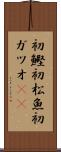 初鰹初松魚初
ガツオ((